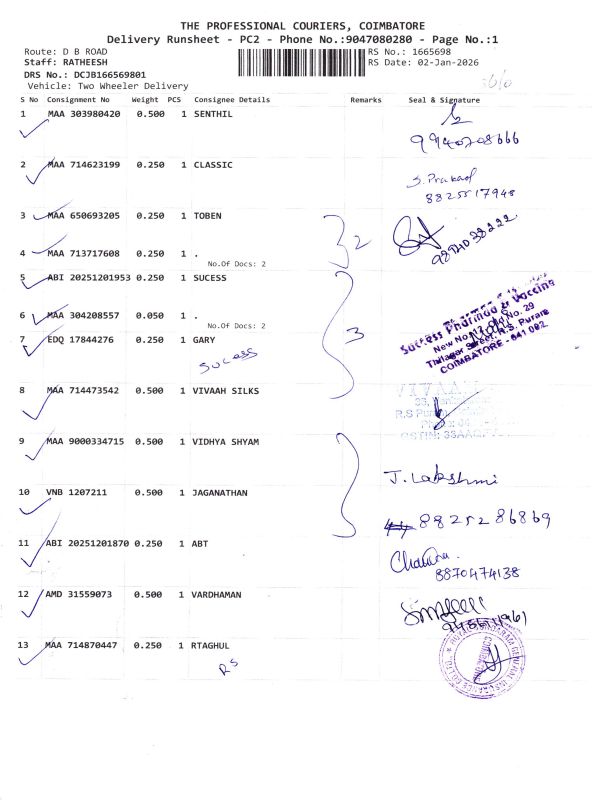 THE PROFESSIONAL COURIERS, COIMBATORE
Delivery Runsheet - PC2 - Phone No.:9047080280 - Page No.:1
Route: D B ROAD RS No.: 1665698
Staff: RATHEESH RS Date: 02-Jan-2026
DRS No.: DCJB166569801
Vehicle: Two Wheeler Delivery
S No Consignment No Weight PCS Consignee Details Remarks Seal & Signature
1 MAA 303980420 0.500 1 SENTHIL
99940708666
2 MAA 714623199 0.250 1 CLASSIC
S. Prakad
8825517948
3 MAA 650693205 0.250 1 TOBEN
2
9894038222
4 MAA 713717608 0.250 1 .
No.Of Docs: 2
5 ABI 20251201953 0.250 1 SUCESS
Success Pharma & Vaccine
6 MAA 304208557 0.050 1 .
New No. Old No. 29
No.Of Docs: 2
Thilagar Street, R.S. Puram
COIMBATORE - 641 002.
7 EDQ 17844276 0.250 1 GARY
3
SUCESS
8 MAA 714473542 0.500 1 VIVAAH SILKS
VIVAAH
R.S Puram
9 MAA 9000334715 0.500 1 VIDHYA SHYAM
J. Lakshmi
10 VNB 1207211 0.500 1 JAGANATHAN
8825286869
11 ABI 20251201870 0.250 1 ABT
8870474138
12 AMD 31559073 0.500 1 VARDHAMAN
13 MAA 714870447 0.250 1 RTAGHUL
RS
GENERAL INSURANCE CO. LTD.